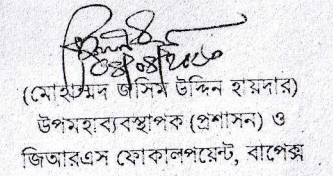 (মোহাম্মদ জসিম উদ্দিন হায়দার)
উপমহাব্যবস্থাপক (প্রশাসন) ও
জিআরএস ফোকালপয়েন্ট, বাপেক্স